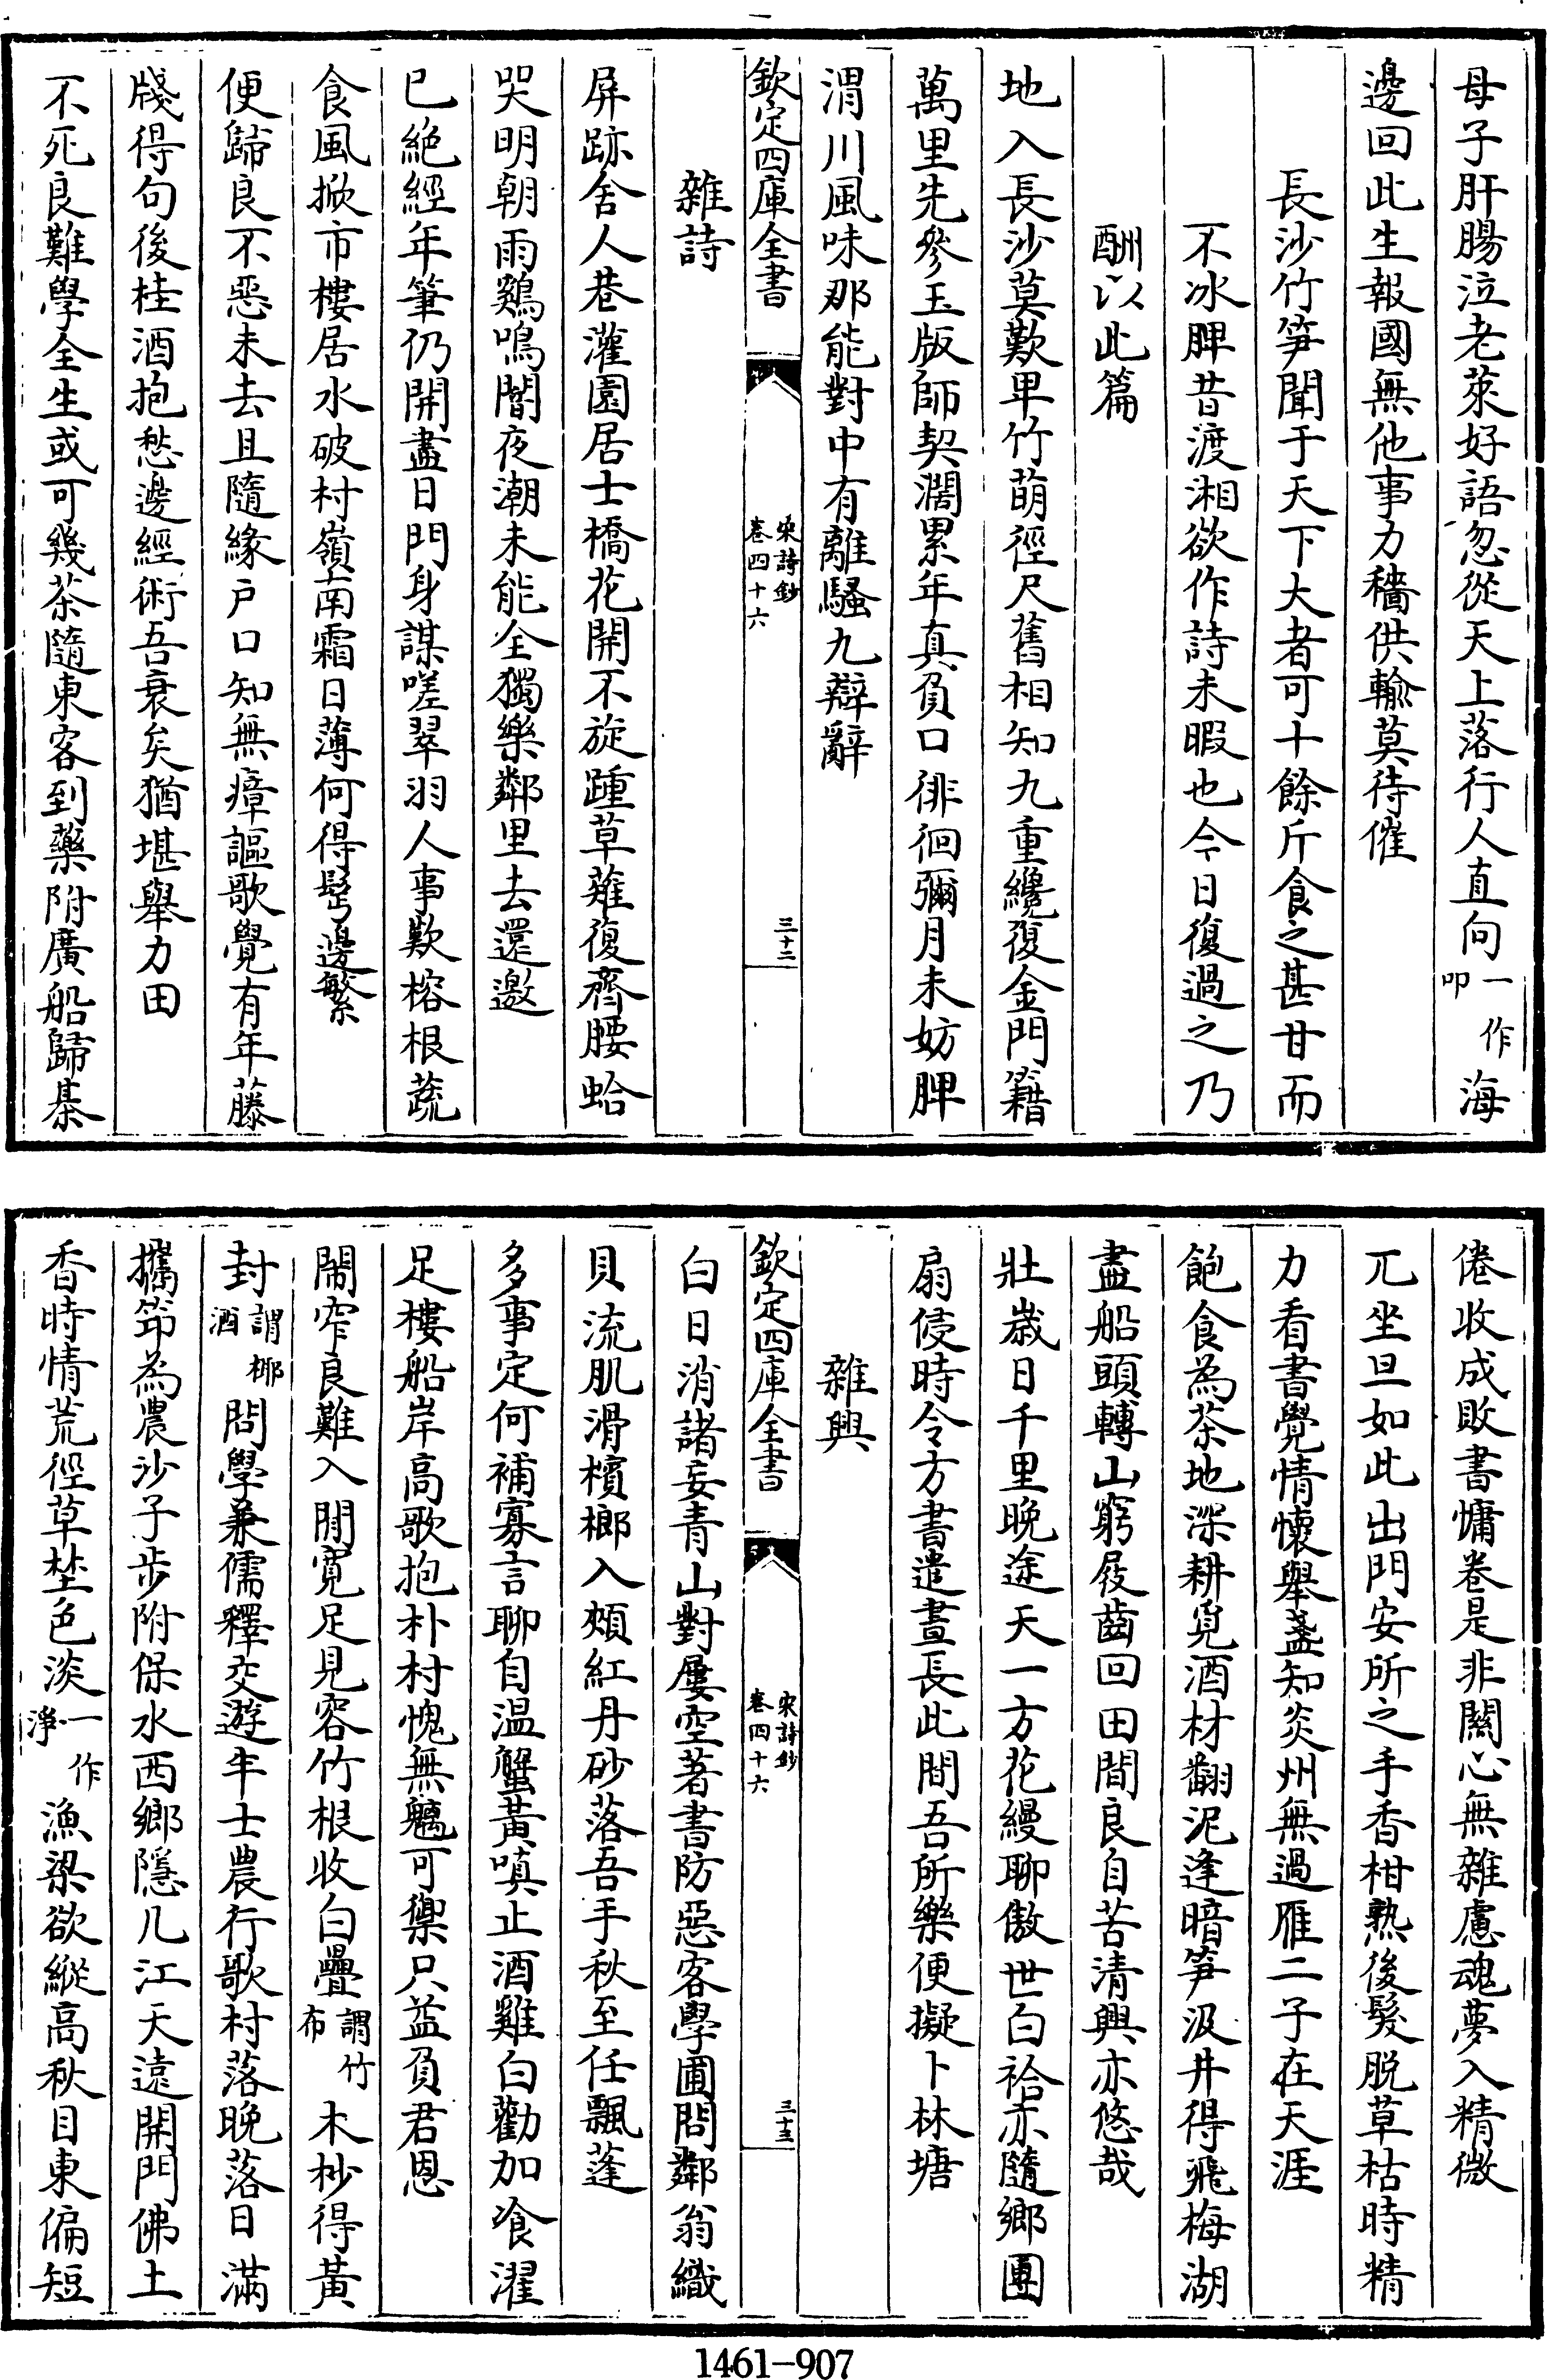 母子肝腸泣老萊好語忽從天上落行人直向一作叩海
邊回此生報國無他事力穡供輸莫待催
長沙竹笋聞于天下大者可十餘斤食之甚甘而
不冰脾昔渡湘欲作詩未暇也今日復過之乃
酬以此篇
地入長沙莫歎卑竹萌徑尺舊相知九重纔復金門籍
萬里先參玉版師契濶累年真負口徘徊彌月未妨脾
渭川風味那能對中有離騷九辯辭
欽定四庫全書
宋詩鈔
卷四十六
三十二
雜詩
屏跡舍人巷灌園居士橋花開不旋踵草薙復齊腰蛤
哭明朝雨鷄鳴闇夜潮未能全獨樂鄰里去還邀
已絶經年筆仍開盡日門身謀嗟翠羽人事歎榕根蔬
食風掀市樓居水破村嶺南霜日薄何得鬂邊繁
便歸良不惡未去且隨緣戸口知無瘴謳歌覺有年藤
牋得句後桂酒抱愁邊經術吾衰矣猶堪舉力田
不死良難學全生或可幾茶隨東客到藥附廣船歸棊
倦收成敗書慵卷是非關心無雜慮魂夢入精微
兀坐旦如此出門安所之手香柑熟後髮脱草枯時精
力看書覺情懷舉盞知炎州無過雁二子在天涯
飽食為茶地深耕覓酒材翻泥逢暗笋汲井得飛梅湖
盡船頭轉山窮屐齒回田間良自苦清興亦悠哉
壯歳日千里晩途天一方花縵聊傲世白袷亦隨鄉團
扇侵時令方書遣晝長此間吾所樂便擬卜林塘
雜興
欽定四庫全書
宋詩鈔
卷四十六
三十三
白日消諸妄青山對屢空著書防惡客學圃問鄰翁織
貝流肌滑檳榔入頰紅丹砂落吾手秋至任飄蓬
多事定何補寡言聊自温蟹黃嗔止酒雞白勸加飡濯
足樓船岸高歌抱朴村愧無魑可禦只益負君恩
閙窄良難入閒寛足見容竹根收白疊謂竹布木杪得黃
封謂椰酒問學兼儒釋交遊半士農行歌村落晩落日滿
攜笻為農沙子步附保水西鄉隱几江天遠開門佛土
香時情荒徑草埜色淡一作淨漁梁欲縱高秋目東偏短
1461-907